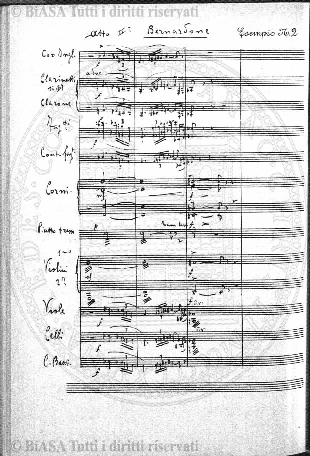 © BiASA Tutti i diritti riservati
Atto II° Bernardone Esempio N. 2
Cor. Ingl.
Clarinetti
Clarone
Fag.tti
Cont. fag.
Corni
Piatto
1mi
Violini
2i
Viole
Celli
C. Bassi
© BiASA Tutti i diritti riservati